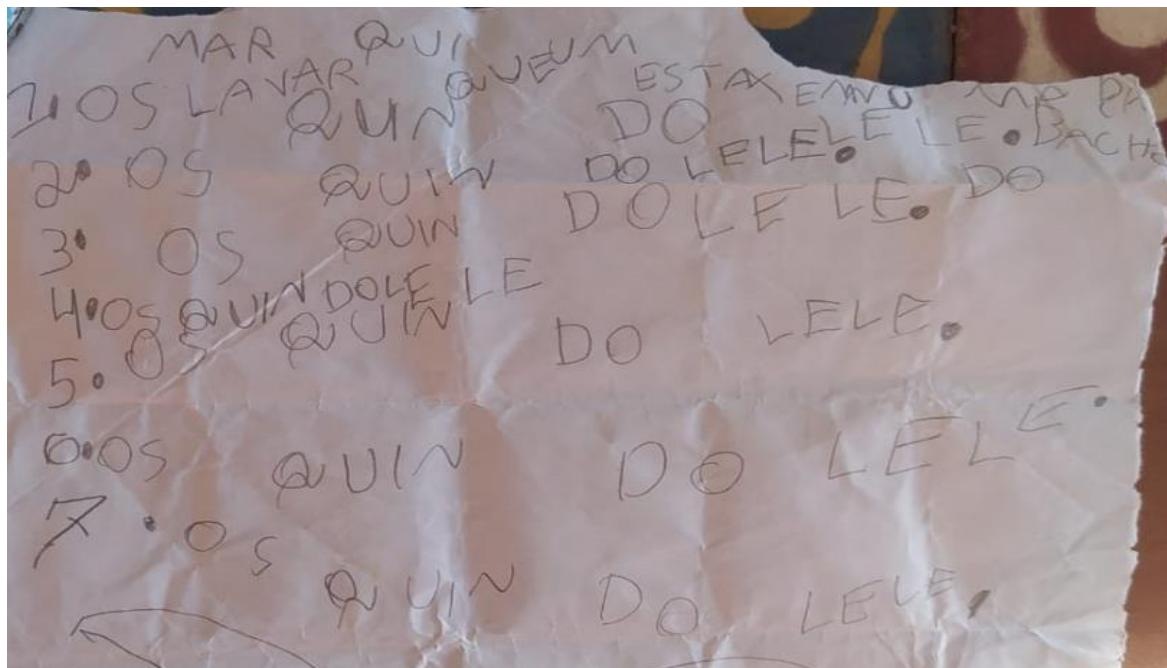 MAR QUI
OS LAVAR QUEUM ESTAX
1. OS QUIN DO LELE.
2. OS QUIN DO LELELELE. BACHO
3. OS QUIN DOLELE. DO
4. OS QUINDOLELE
5. OS QUIN DO LELE.
6. OS QUIN DO LELE.
7. OS QUIN DO LELE.